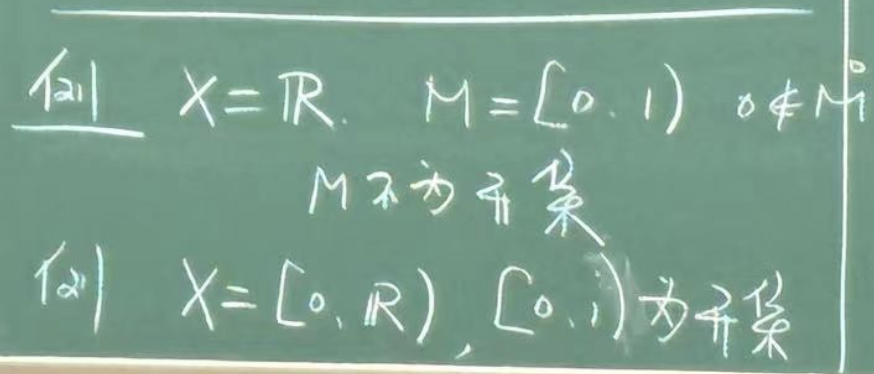 例 X=ℝ. M=[0.1) 0∉M̊
M不为开集
例 X=[0,ℝ), [0,1)为开集